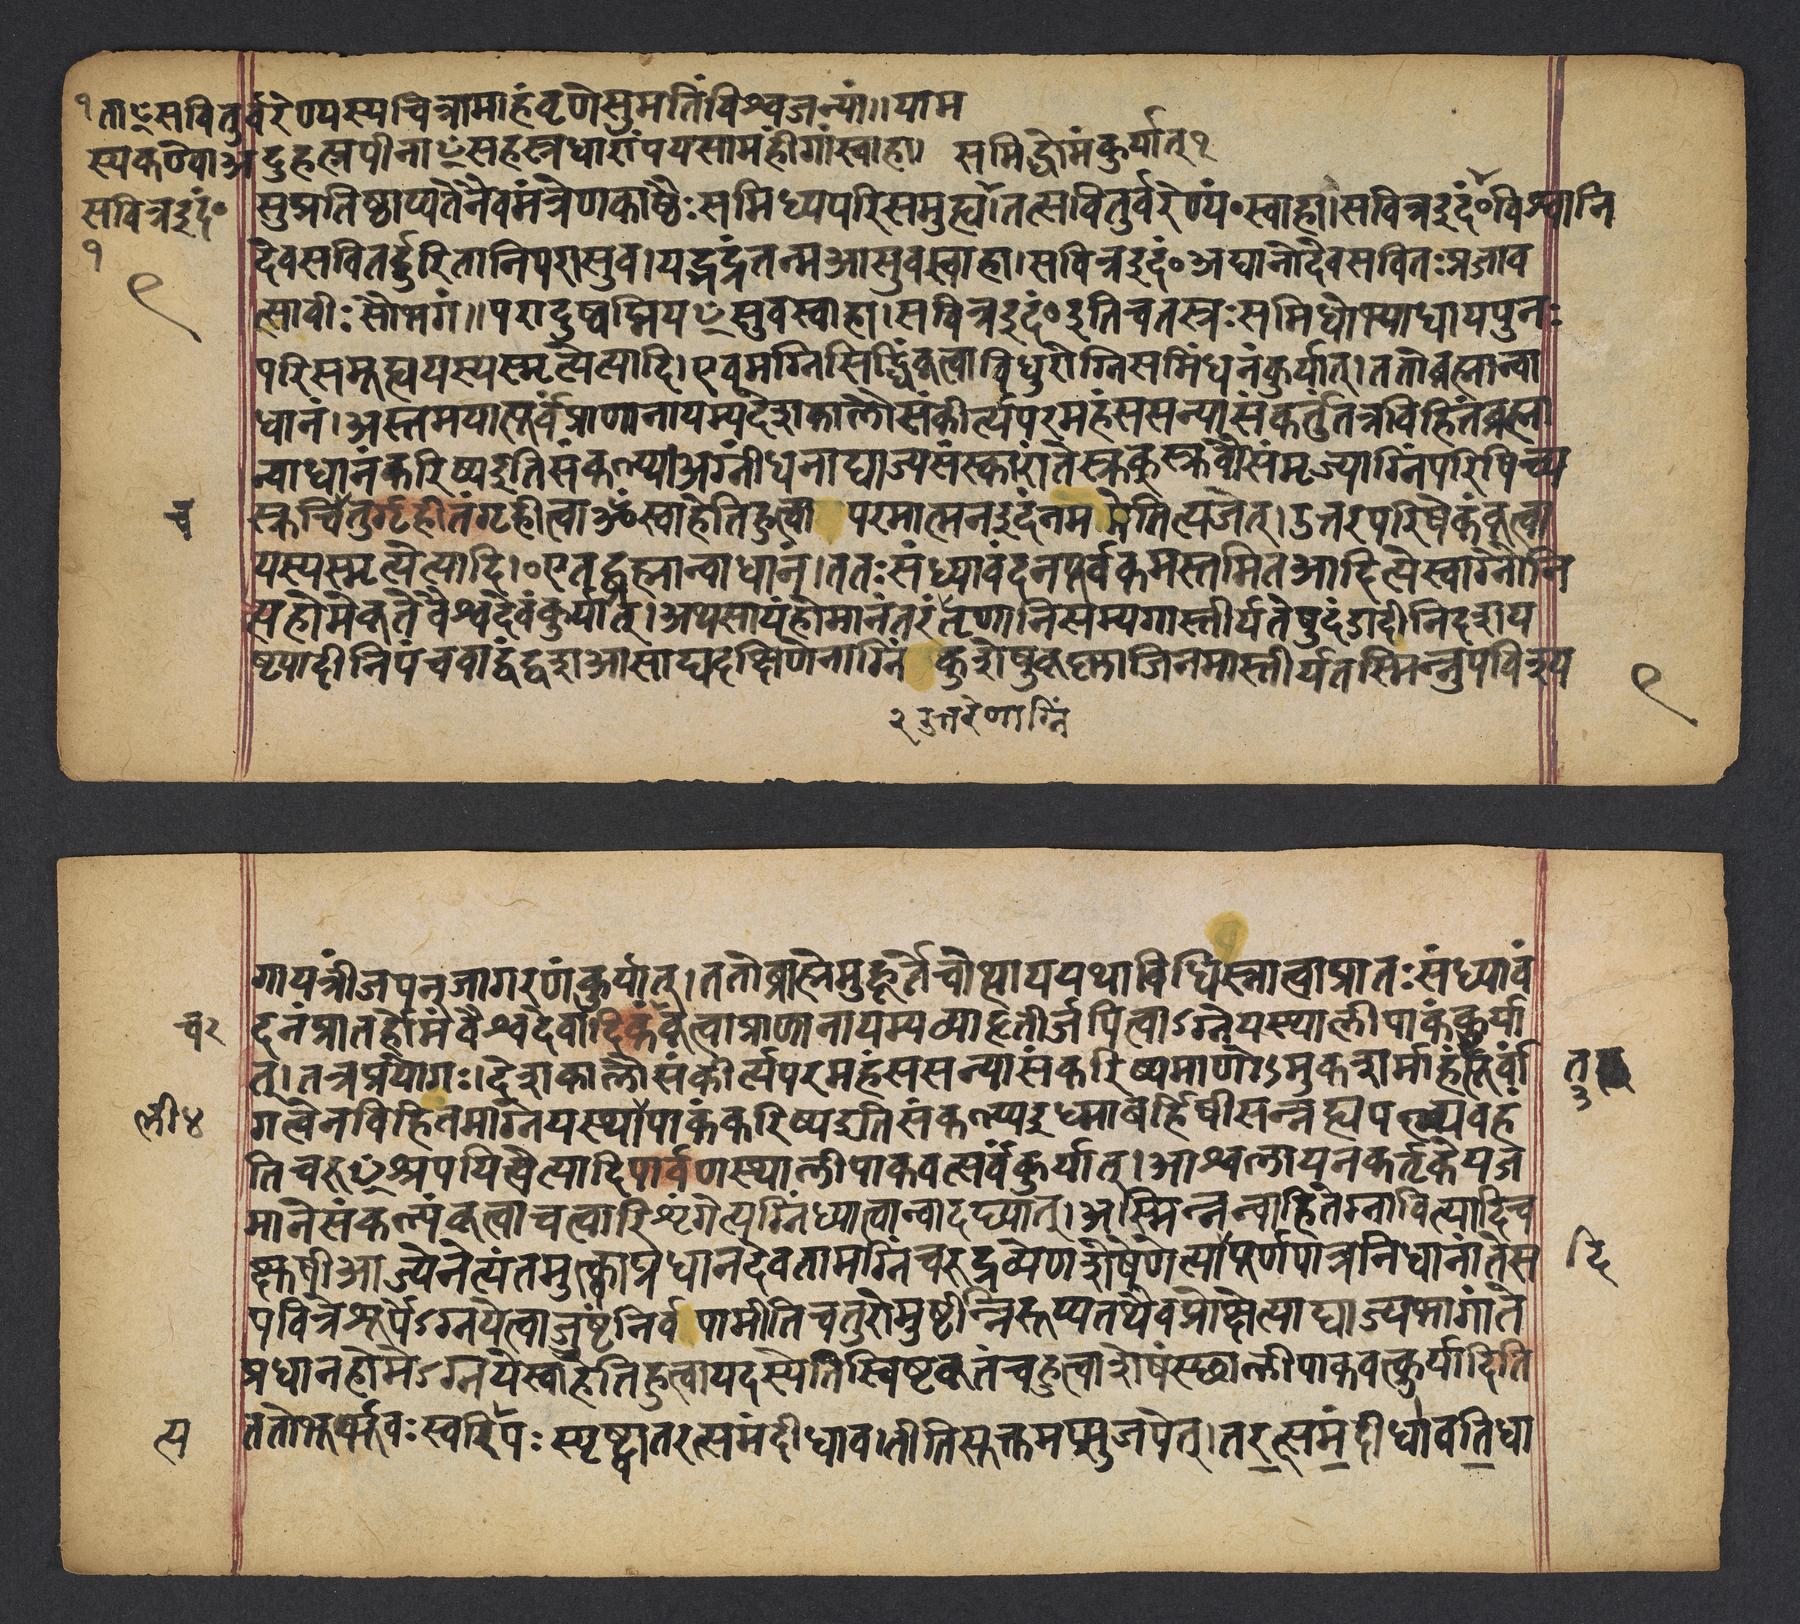 १ ताꣳसवितुर्वरेण्यस्यचित्रामाहंवृणेसुमतिंविश्वजन्यां॥ याम
स्यकण्वोअदुहत्प्रपीनाꣳसहस्रधारांपयसामहींगांस्वाहा। समिद्धोमंकुर्यात् १
सवित्रइदं॰ सुप्रतिष्ठाप्यतेनैवमंत्रेणकाष्ठैःसमिध्यपरिसमुह्य।तत्सवितुर्वरेण्यं॰स्वाहा।सवित्रइदं॰विश्वानि
१ देवसवितर्दुरितानिपरासुव।यद्भद्रंतन्मआसुवस्वाहा।सवित्रइदं॰अद्यानोदेवसवितःप्रजाव
९ त्सावीःसौभगं॥परादुष्वप्नियꣳसुवस्वाहा।सवित्रइदं॰इतिचतस्रःसमिधोभ्याधायपुनः
परिसमूह्ययस्यस्मृत्येत्यादि।एवमग्निसिद्धिंकृत्वाविधुरोग्निसमिंधनंकुर्यात्।ततोब्रह्मान्वा
धानं।अस्तमयात्पूर्वंप्राणानायम्यदेशकालौसंकीर्त्यपरमहंससन्यासंकर्तुंतत्रविहितंब्रह्मा
न्वाधानंकरिष्यइतिसंकल्प्य।अग्नींधनाद्याज्यसंस्कारांतेस्रुक्स्रुवौसंमृज्याग्निंपरिषिच्य
च स्रुचिचतुर्गृहीतंगृहीत्वाॐस्वाहेतिहुत्वा परमात्मनइदंनममेतित्यजेत्।उत्तरपरिषेकंकृत्वा
यस्यस्मृत्येत्यादि।॰एतद्ब्रह्मान्वाधानं।ततःसंध्यावंदनपूर्वकमस्तमितआदित्येस्वाग्नौनि
त्यहोमेकृतेवैश्वदेवंकुर्यात्।अथसायंहोमानंतरंतृणानिसम्यगास्तीर्यतेषुदंडादीनिदशय
ष्ट्यादीनिपंचवाद्वंद्वशआसाद्यदक्षिणेनाग्निं कुशेषुकृष्णाजिनमास्तीर्यतस्मिन्नुपविश्य ९
२ उत्तरेणाग्निं
गायत्रींजपन्जागरणंकुर्यात्।ततोब्राह्मेमुहूर्तेचोत्थाययथाविधिस्नात्वाप्रातःसंध्यावं
दनंप्रातर्होमंवैश्वदेवादिकंकृत्वाप्राणानायम्यव्याहृतीर्जपित्वाऽग्नेयस्थालीपाकंकुर्या
त्।तत्रप्रयोगः।देशकालौसंकीर्त्यपरमहंससन्यासंकरिष्यमाणोऽमुकशर्माहंपूर्वां
ली४ गत्वेनविहितमाग्नेयस्थापाकंकरिष्यइतिसंकल्प्यइध्माबर्हिषीसन्नह्यपत्न्यवहं
तिचरुꣳश्रपयित्वेत्यादिपार्वणस्थालीपाकवत्सर्वंकुर्यात्।आश्वलायनकर्तृकेयज
मानेसंकल्पंकृत्वाचत्वारिशृंगेत्यग्निंध्यात्वान्वादध्यात्।अस्मिन्नन्वाहितेग्नावित्यादिच
क्षुषीआज्येनेत्यंतमुक्त्वाप्रधानदेवतामग्निंचरुद्रव्येणशेषेणेत्यापूर्णपात्रनिधानांतेस दि
पवित्रेशूर्पेऽग्नयेत्वाजुष्टंनिर्वपामीतिचतुरोमुष्टीन्निरूप्यतथैवप्रोक्षेत्याद्याज्यभागांते
प्रधानहोमेऽग्नयेस्वाहेतिहुत्वायदस्येतिस्विष्टकृतंचहुत्वाशेषंस्थालीपाकवत्कुर्यादिति
त्य ततोभूर्भुवःस्वरिपःस्पृष्ट्वातरत्समंदीधावतीतिसूक्तमप्सुजपेत्।तरत्समंदीधावतिधा